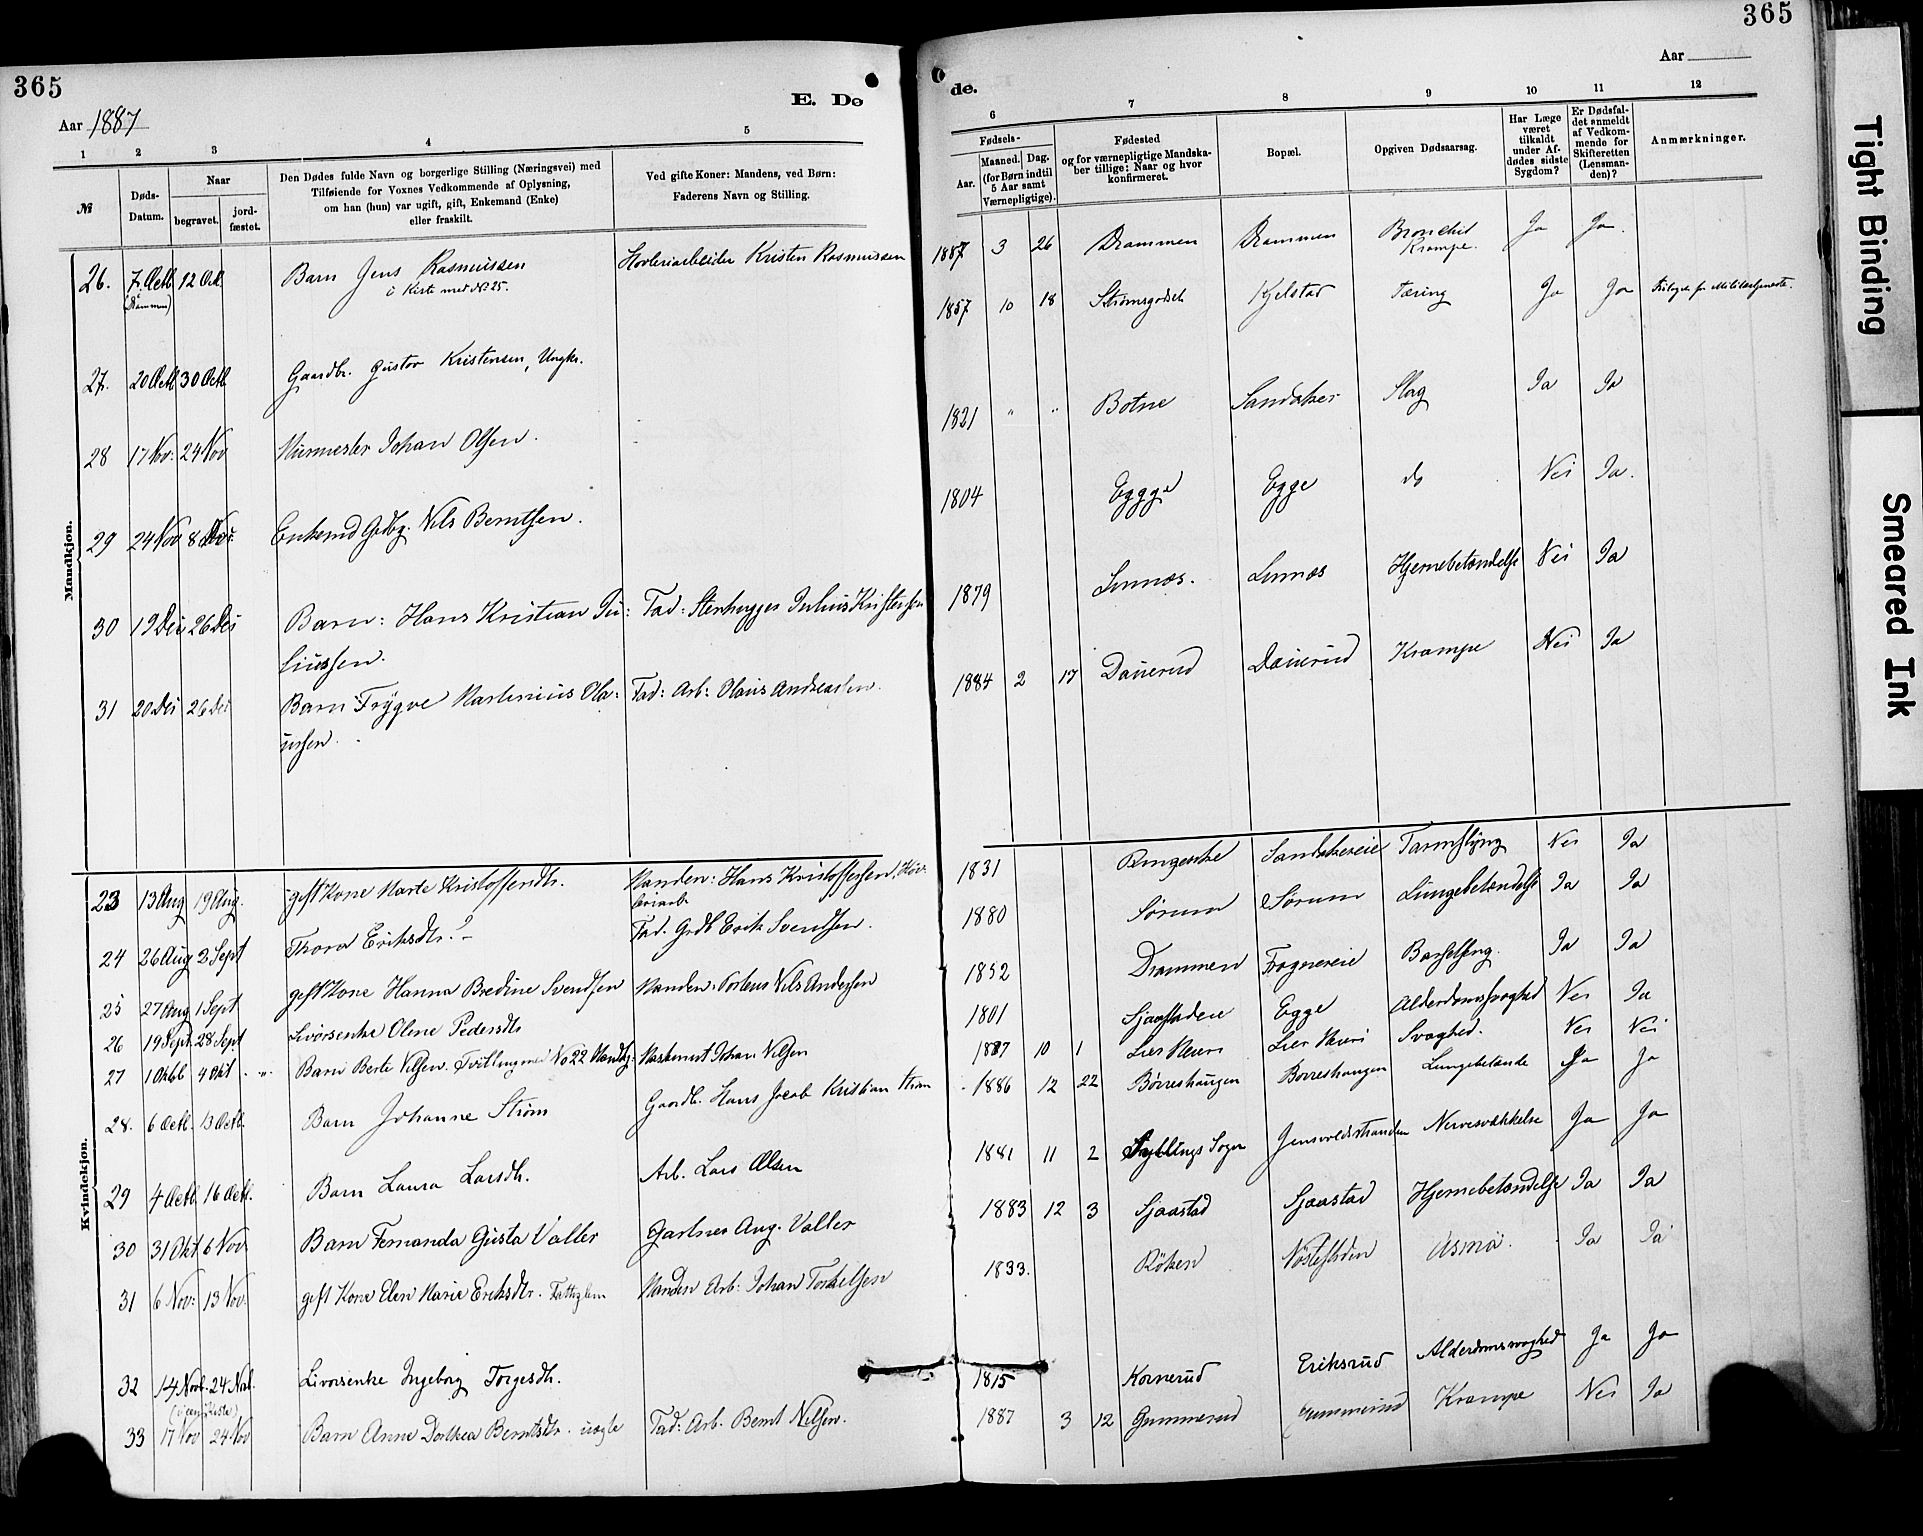 365
365
Aar 1887
E. Dø
de.
Aar
1 2 3 4 5
6 7 8 9 10 11 12
№
Døds-
Datum.
Naar
begravet.
jord-
fæstet.
Den Dødes fulde Navn og borgerlige Stilling (Næringsvei) med
Tilføiende for Voxnes Vedkommende af Oplysning,
om han (hun) var ugift, gift, Enkemand (Enke)
eller fraskilt.
Ved gifte Koner: Mandens, ved Børn:
Faderens Navn og Stilling.
Fødsels-
Aar.
Maaned. Dag.
(for Børn indtil
5 Aar samt
Værnepligtige).
Fødested
og for værnepligtige Mandska-
ber tillige: Naar og hvor
konfirmeret.
Bopæl.
Opgiven Dødsaarsag.
Har Læge
været
tilkaldt
under Af-
dødes sidste
Sygdom?
Er Dødsfal-
det anmeldt
af Vedkom-
mende for
Skifteretten
(Lensman-
den)?
Anmærkninger.
Mandkjøn.
26. 7. Octb 12 Oct Barn Jens Rasmussen Hovleriarbeider Kristen Rasmussen 1887 3 26 Drammen Drammen Bronchit Ja Ja.
(Drammen) i Kiste med No 25. Krampe.
27. 20 Octb 30 Octb Gaardbr. Gustav Kristensen, Ungkr. 1857 10 18 Strømsgodset Kjelstad Tæring Ja Ja
28 17 Nov: 24 Nov Murmester Johan Olsen. 1821 " " Botne Sandaker Slag Ja Ja
29 24 Nov 8 Enkemd Grdbg. Nils Berntsen. 1804 Eggge Egge do Nei Ja.
30 19 Des 26 Des Barn: Hans Kristian Ju: Fad: Stenhugger Julius Kristensen 1879 Linnæs. Linnæs Hjernebetændelse Nei Ja
liussen.
31 20 Des 26 Des Barn Trygve Martinius Ola: Fad: Arb: Olaus Andreassen. 1884 2 17 Dauerud Dauerud Krampe Nei Ja
ussen.
Kvindekjøn.
23 13 Aug 19 Aug. gift Kone Marte Kristoffersdtr. Manden: Hans Kristoffersen, Høv: 1831 Ringerike Sandakereie Tarmslyng Nei Ja
leriarb
24 26 Aug 2 Sept Thora Eriksdtr.? Fad. Grdb Erik Svendsen. 1880 Sørum Sørum Lungebetændelse Ja Ja
25 27 Aug 1 Sept gift Kone Hanna Bredine Svendsen Manden: Nils Andersen 1852 Drammen Frognereie Barselseng. Ja Ja
26 19 Sept. 28 Sept Livørsenke Oline Pedersdtr 1801 Egge Alderdomssvaghed Nei Ja
27 1 Oktb 4 Okt Barn Berte Nilsen. Tvilling med No 22 Mandkj. Maskinist Johan Nilsen 1887 10 1 Lier Svaghed. Nei Nei
28. 6 Octb. 13 Octb. Barn Johanne Strøm Gaardb. Hans Jacob Kristian Strøm 1886 12 22 Børreshaugen Børreshaugen Lungebetænde Ja Ja
29 4 Octb. 16 Octb. Barn Laura Larsdtr. Arb. Lars Olsen 1881 11 2 Sogn Jensvoldstranden Nervesvækkelse Ja Ja
30 31 Okt 6 Nov Barn Fernanda Gusta Valler Gartner Aug. Valler 1883 12 3 Sjaastad Sjaastad Hjernebetændelse Ja Ja
31 6 Nov: 13 Nov. gift Kone Elen Marie Eriksdtr. Fattiglem Manden Arb: Johan Torkelsen 1833. Røken Asma. Ja Ja
32 14 Novb. 24 Nvb. Livørsenke Ingeborg Torgesdtr. 1815 Kornerud Eriksrud Alderdomssvaghed Ja Ja
33 17 Nov 24 Nov Barn Anne Dorthea Berntsdtr. uægte Fad: Arb. Bernt Nilsen. 1887 3 12 Gummerud Gummerud Krampe Nei Ja
Tight Binding
Smeared Ink